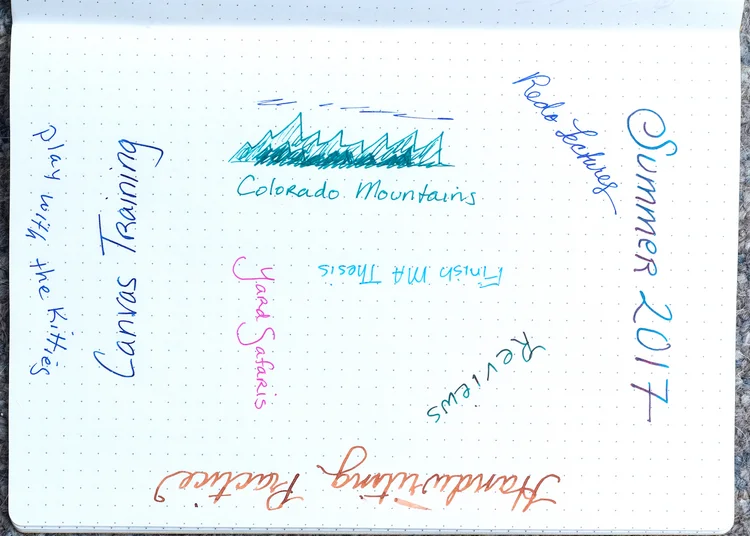 Summer 2017
Redo Lectures
Colorado Mountains
Finish MA Thesis
Yard Safaris
Reviews
Canvas Training
Play with the Kitties
Handwriting Practice?